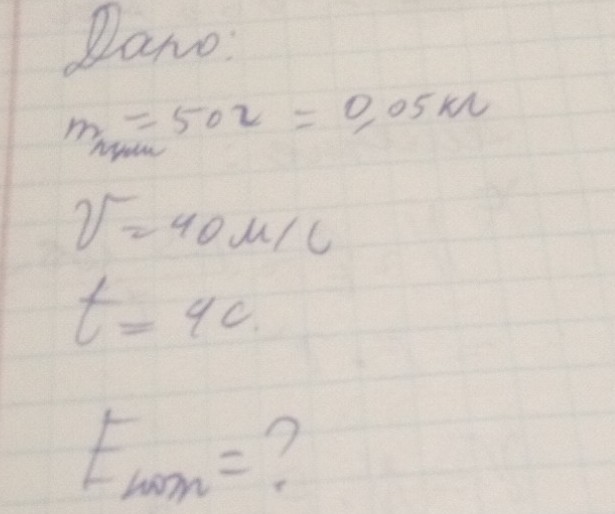 Дано:
m пули = 50г = 0,05кг
V = 40м/с
t = 4с.
E пот = ?